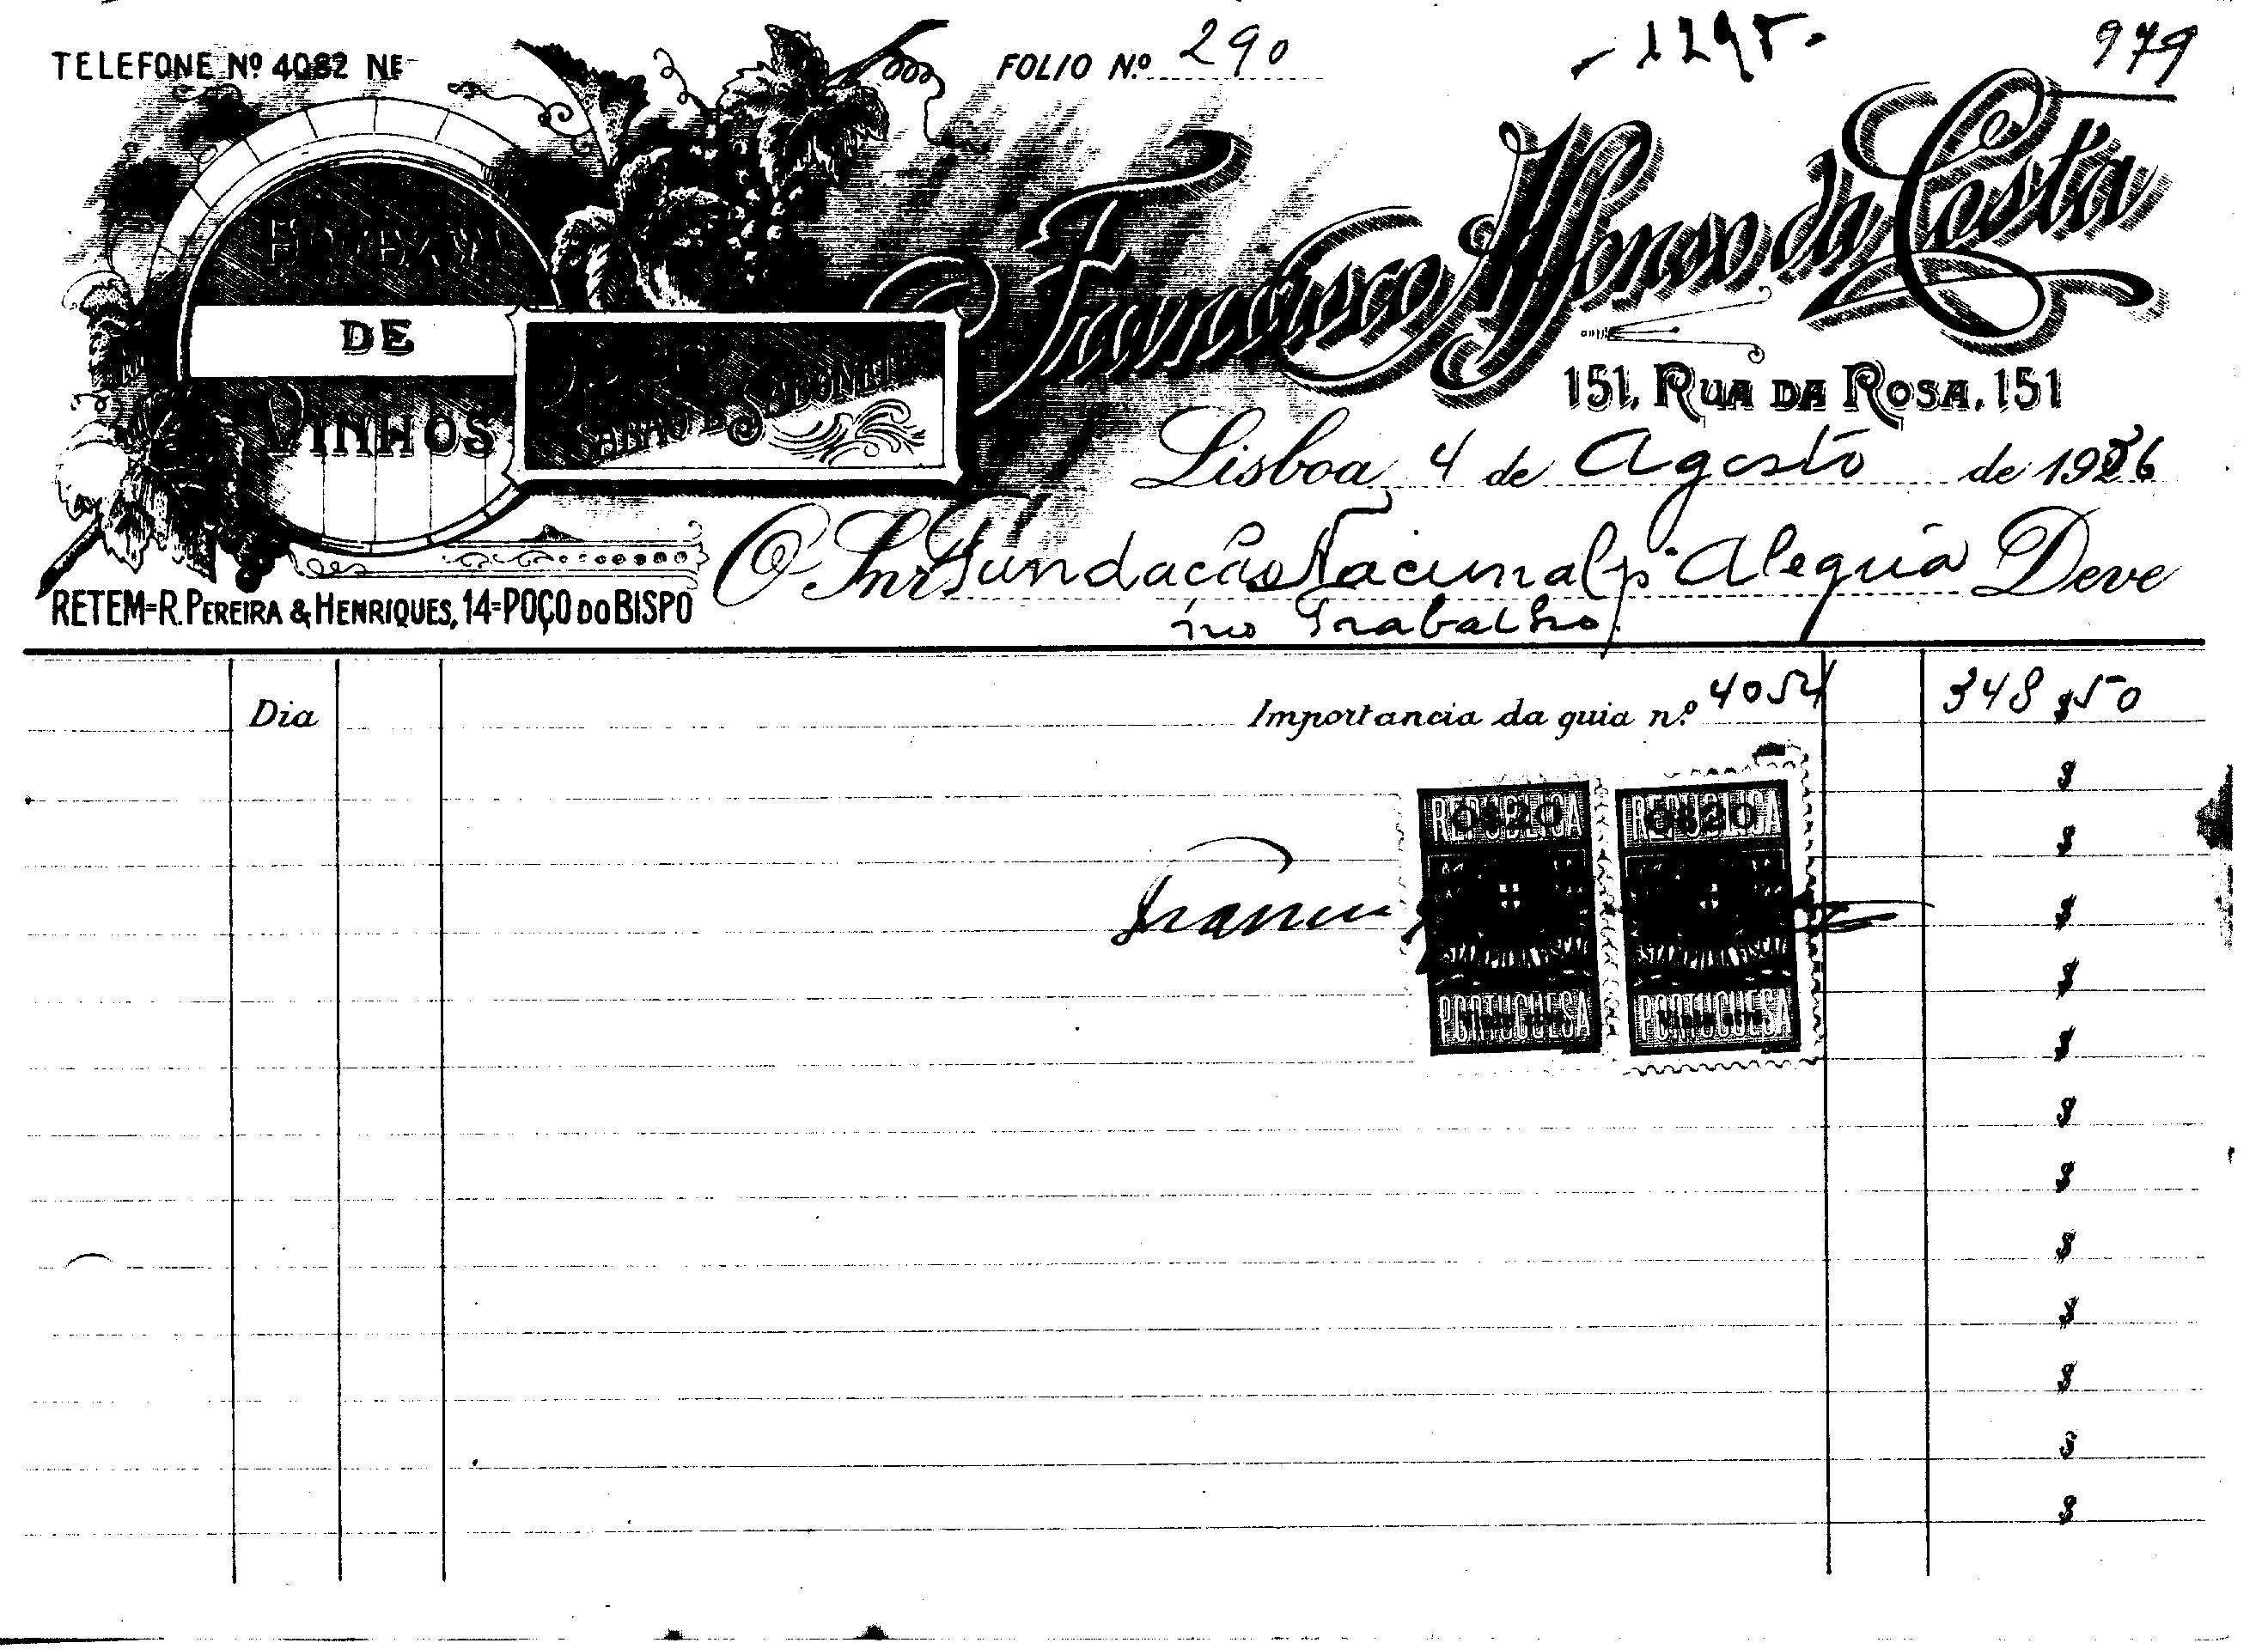 TELEFONE Nº 4082 NE
FOLIO N.º 290
- 1295 -
979
DE
VINHOS
SABÃO E SABONETE
Francisco Affonso da Costa
151, RUA DA ROSA, 151
Lisboa, 4 de Agosto de 1936
O Snr. Fundação Nacional p.ª Alegria Deve
no Trabalho
RETEM=R. PEREIRA & HENRIQUES, 14=POÇO DO BISPO
Dia Importancia da guia n.º 4054 348 $ 50
$
REPUBLICA REPUBLICA
0$20 0$20
$
$
ESTAMPILHA FISCAL ESTAMPILHA FISCAL
$
PORTUGUESA PORTUGUESA
$
$
$
$
$
$
$
$